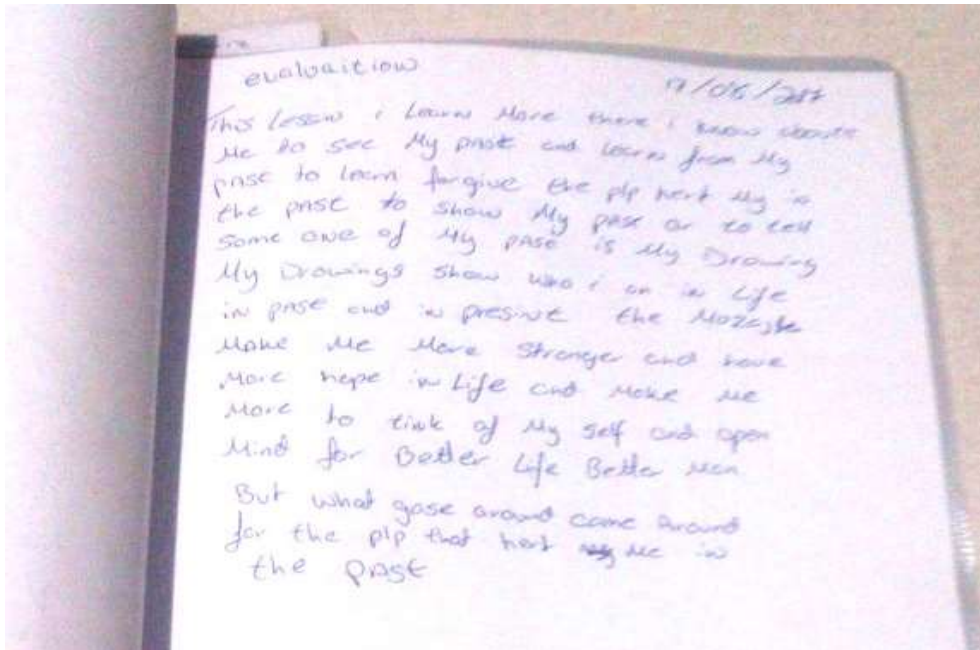 evaluaition
17/06/207
This Lesson i Learn More there i know aboute
Me to see My past and Learn from My
past to learn forgive the plp hert My in
the past to show My past or to tell
some one of My past is My Drawing
My Drawings show who i am in Life
in past and in presint the
Make Me More Stronger and have
More hope in Life and Make Me
More to tink of My self and open
Mind for Better Life Better Men
But what gose around come around
for the plp that hert Me in
the past